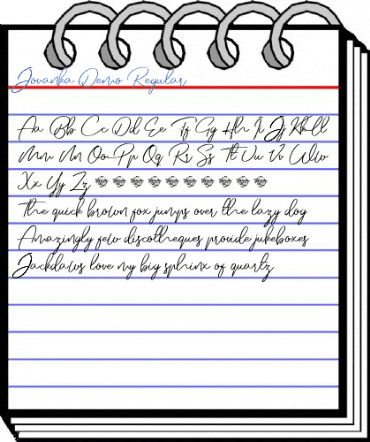 Jovanka Demo Regular
Aa Bb Cc Dd Ee Ff Gg Hh Ii Jj Kk Ll
Mm Nn Oo Pp Qq Rr Ss Tt Uu Vv Ww
Xx Yy Zz
The quick brown fox jumps over the lazy dog
Amazingly few discotheques provide jukeboxes
Jackdaws love my big sphinx of quartz